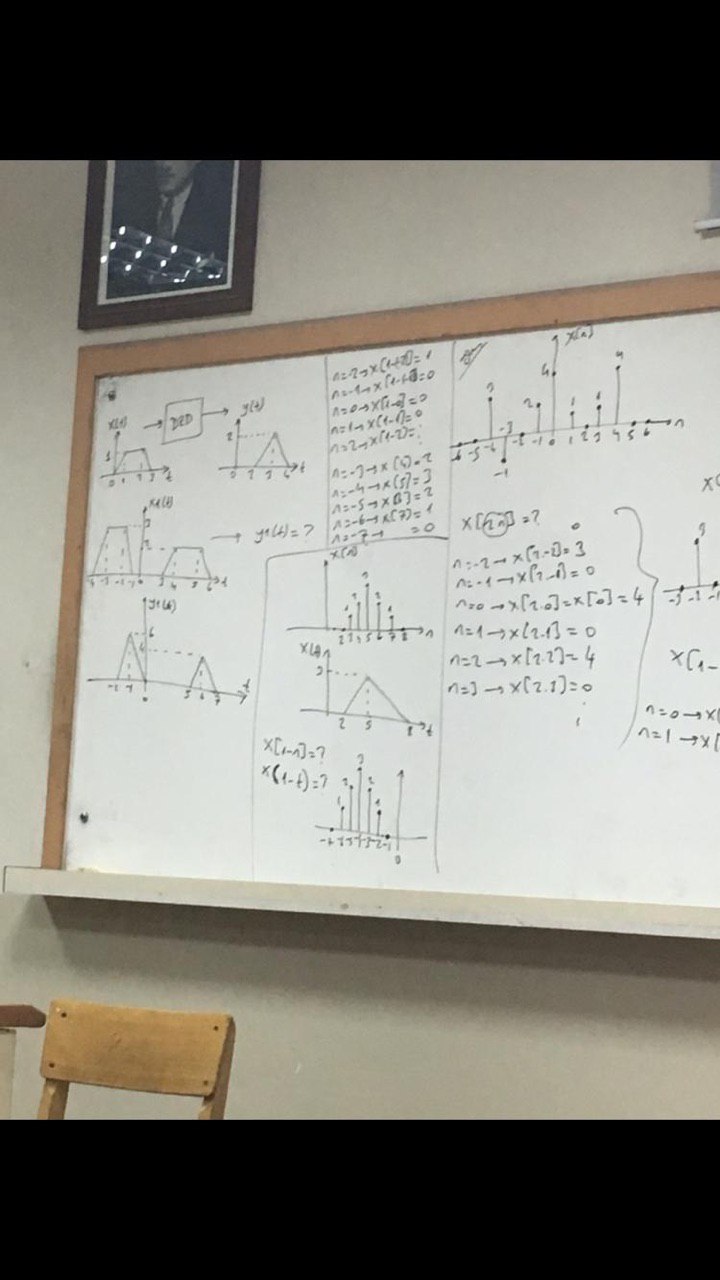 x(t)
y(t)
1
0 1 2 3 t
2
0 2 3 4 t
x1(t)
3
2
-4 -3 -2 -1 0 3 4 5 6 t
y1(t)=?
y1(t)
6
4
-2 -1 0 5 6 7 t
n=-2→x[1+2]=1
n=0→x[1-0]=0
n=1→x[1-1]=0
n=2→x[1-2]=
n=-4→x[5]=3
n=-6→x[7]=1
n=-7→ =0
x[n]
1 2 3 2 1
2 3 4 5 6 7 8 n
2 5 8 t
x[1-n]=?
x(1-t)=?
1 2 3 2 1
0
x[n]
4
2
4
-1
-6 -5 -4 -3 -2 -1 0 1 2 3 4 5 6 n
x[2n]=?
n=-2→x[2.-2]=3
n=-1→x[2.-1]=0
n=0→x[2.0]=x[0]=4
n=1→x[2.1]=0
n=2→x[2.2]=4
n=3→x[2.3]=0
x[1-
n=0→x(
n=1→x[